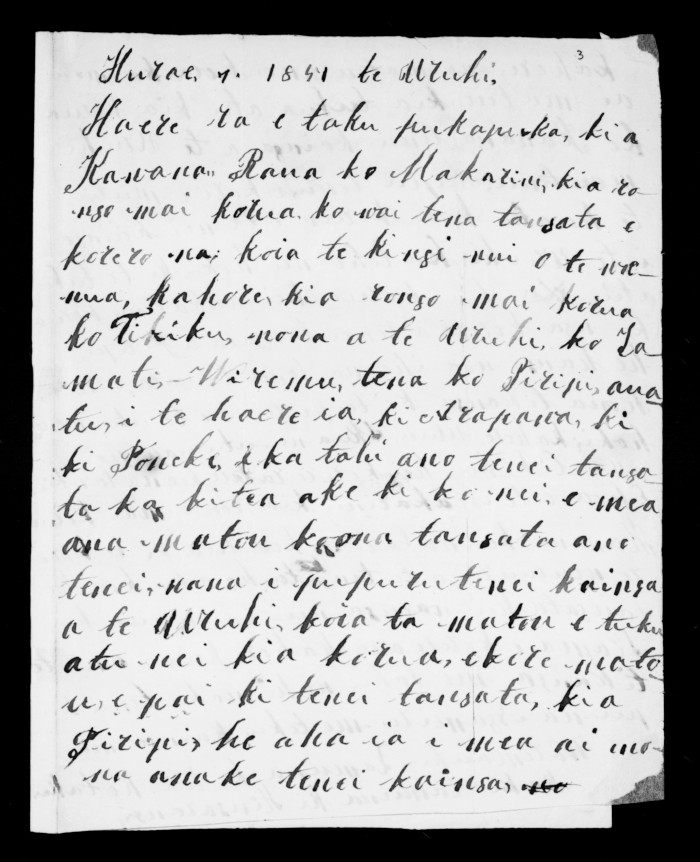 3
Hurae, 7. 1851 te Uruhi,
Haere ra e taku pukapuka, ki a
Kawana, Raua ko Makarini, kia ro-
ngo mai korua ko wai tena tangata e
korero na, koia te kingi nui o te we-
nua, kahore, kia rongo mai korua
ko Tikiku, nona a te Uruhi, ko Ta
mati - Wiremu, tena ko Piripi, ana
tu, i te haere ia, ki Arapawa, ki
ki Poneke, e ka tahi ano tenei tanga-
ta ka kitea ake ki ko nei, e mea
ana matou koona tangata ano
tenei, nana i pupuru tenei kainga
a te Uruhi, koia ta matou e tuku
atu nei kia korua, ekore mato
u, e pai ki tenei tangata, kia
Piripi, he aha ia i mea ai mo-
na anake tenei kainga, no